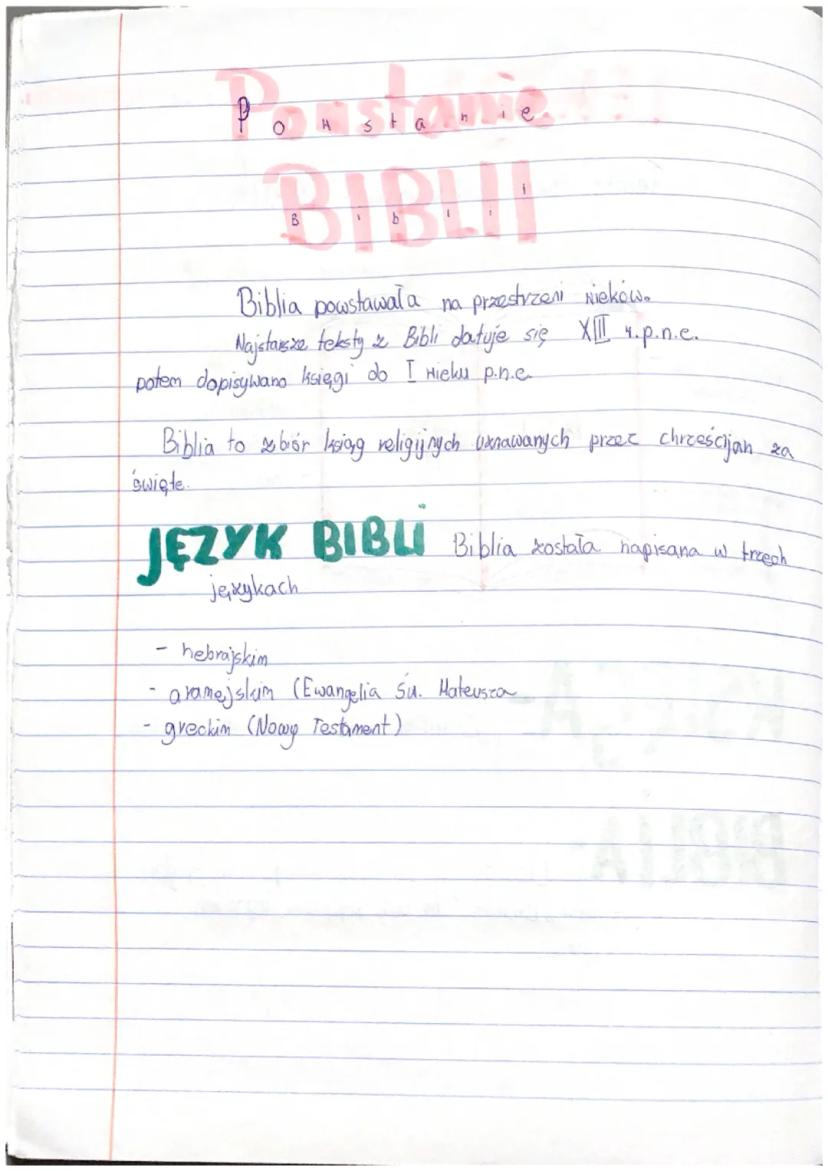 Powstanie
BIBLII
Biblia powstawała na przestrzeni wieków.
Najstarsze teksty z Bibli datuje się XIII w.p.n.e.
potem dopisywano księgi do I wieku p.n.e.
Biblia to zbiór ksiąg religijnych uznawanych przez chrześcijan za
święte.
JĘZYK BIBLI Biblia została napisana w trzech
językach
- hebrajskim
- aramejskim (Ewangelia św. Mateusza
- greckim (Nowy Testament)